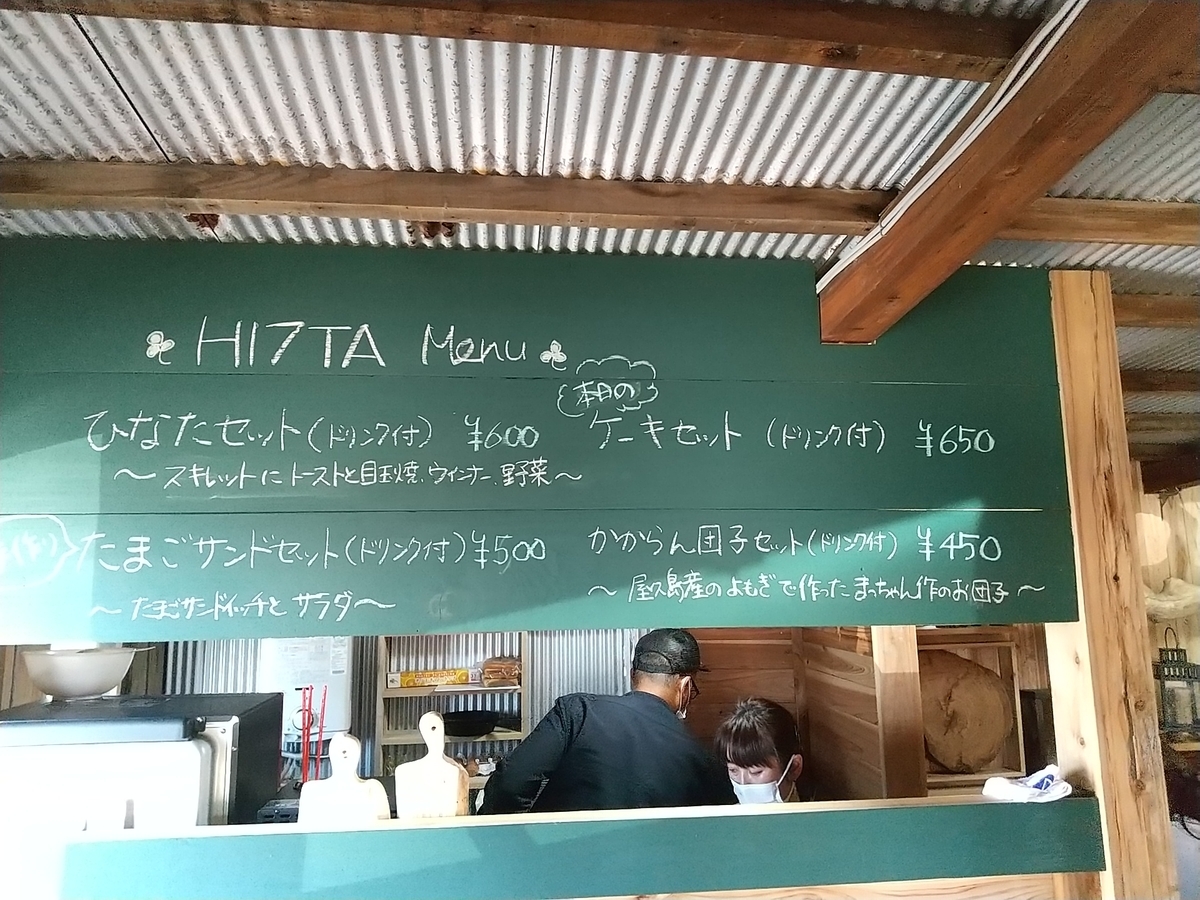 HI7TA Menu
ひなたセット(ドリンク付) ¥600
～スキレットにトーストと目玉焼、ウィンナー、野菜～
たまごサンドセット(ドリンク付) ¥500
～たまごサンドイッチとサラダ～
本日の
ケーキセット (ドリンク付) ¥650
かからん団子セット(ドリンク付) ¥450
～屋久島産のよもぎで作ったまっちゃん作のお団子～